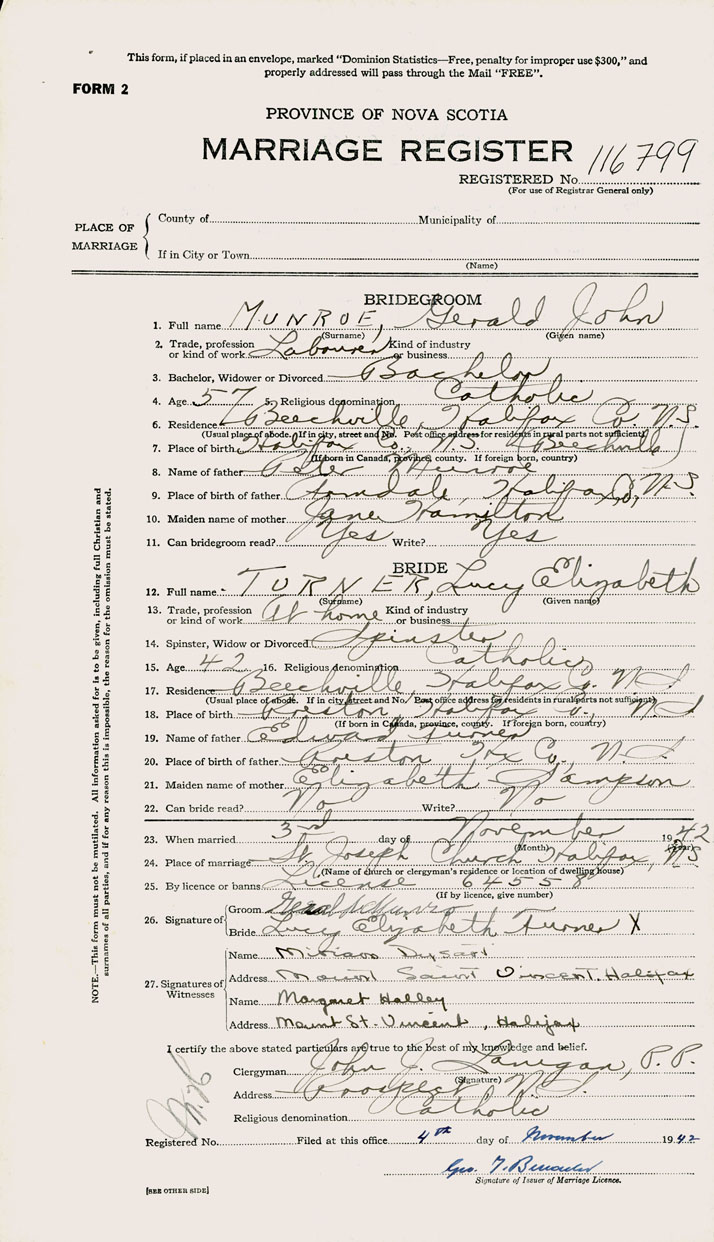 This form, if placed in an envelope, marked "Dominion Statistics—Free, penalty for improper use $300," and
properly addressed will pass through the Mail "FREE".
FORM 2
PROVINCE OF NOVA SCOTIA
MARRIAGE REGISTER 116799
REGISTERED No.
(For use of Registrar General only)
PLACE OF MARRIAGE
County of Municipality of
If in City or Town
(Name)
BRIDEGROOM
1. Full name MUNROE, Gerald John
(Surname) (Given name)
2. Trade, profession or kind of work Labourer Kind of industry or business
3. Bachelor, Widower or Divorced Bachelor
4. Age 57 5. Religious denomination Catholic
6. Residence Beechville, Halifax Co. N.S.
(Usual place of abode. If in city, street and No. Post office address for residents in rural parts not sufficient)
7. Place of birth Halifax Co., N.S. (Beechville)
(If born in Canada, province, county. If foreign born, country)
8. Name of father Peter Munroe
9. Place of birth of father Armdale, Halifax Co, N.S.
10. Maiden name of mother Jane Hamilton
11. Can bridegroom read? Yes Write? Yes
BRIDE
12. Full name TURNER, Lucy Elizabeth
(Surname) (Given name)
13. Trade, profession or kind of work At home Kind of industry or business
14. Spinster, Widow or Divorced Spinster
15. Age 42 16. Religious denomination Catholic
17. Residence Beechville, Halifax Co. N.S.
(Usual place of abode. If in city, street and No. Post office address for residents in rural parts not sufficient)
18. Place of birth Preston, Halifax Co., N.S
(If born in Canada, province, county. If foreign born, country)
19. Name of father Edward Turner
20. Place of birth of father Preston Hfx Co., N.S
21. Maiden name of mother Elizabeth Sampson
22. Can bride read? No Write? No
23. When married 3rd day of November 1942
(Month) (Year)
24. Place of marriage St. Joseph Church Halifax, NS
(Name of church or clergyman's residence or location of dwelling house)
25. By licence or banns License 64558
(If by licence, give number)
26. Signature of
Groom Gerald Munro
Bride Lucy Elizabeth Turner X
27. Signatures of Witnesses
Name Miriam Dysart
Address Mount Saint Vincent, Halifax
Name Margaret Halley
Address Mount St. Vincent, Halifax
I certify the above stated particulars are true to the best of my knowledge and belief.
Clergyman John J. Lanegan, P.P.
(Signature)
Address Prospect N.S.
Religious denomination Catholic
Registered No. Filed at this office 4th day of November 1942
Geo.
Signature of Issuer of Marriage Licence.
[SEE OTHER SIDE]
NOTE.—This form must not be mutilated. All information asked for is to be given, including full Christian and
surnames of all parties, and if for any reason this is impossible, the reason for the omission must be stated.